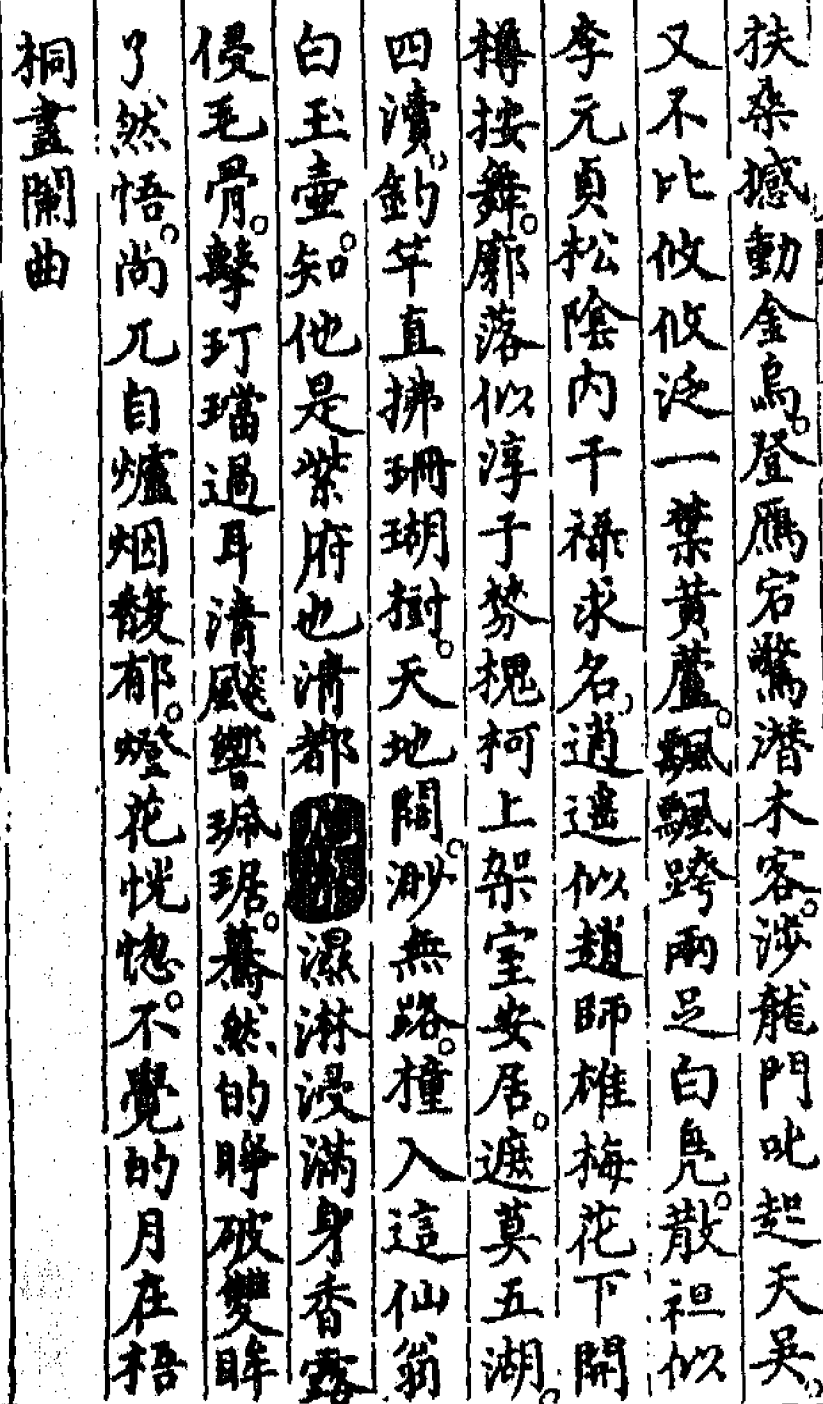 扶桒撼動金烏。登鴈宕驚潜木客。涉龍門叱起天吳。
又不比攸攸泛一葉黄蘆。飄飄跨兩足白鳧。散袒似
李元貞松陰内干禄求名，逍遥似趙師雄梅花下開
樽按舞。廓落似淳于棼槐柯上架室安居。遮莫五湖。
四瀆。釣竿直拂珊瑚樹。天地闊。渺無路。撞入這仙翁
白玉壷。知他是紫府也清都濕淋浸滿身香露
侵毛骨。擊玎璫過耳清颷響珮琚。驀然的睜破雙眸
了然悟。尚兀自爐烟馥郁。燈花恍惚。不覺的月在梧
桐畫闌曲